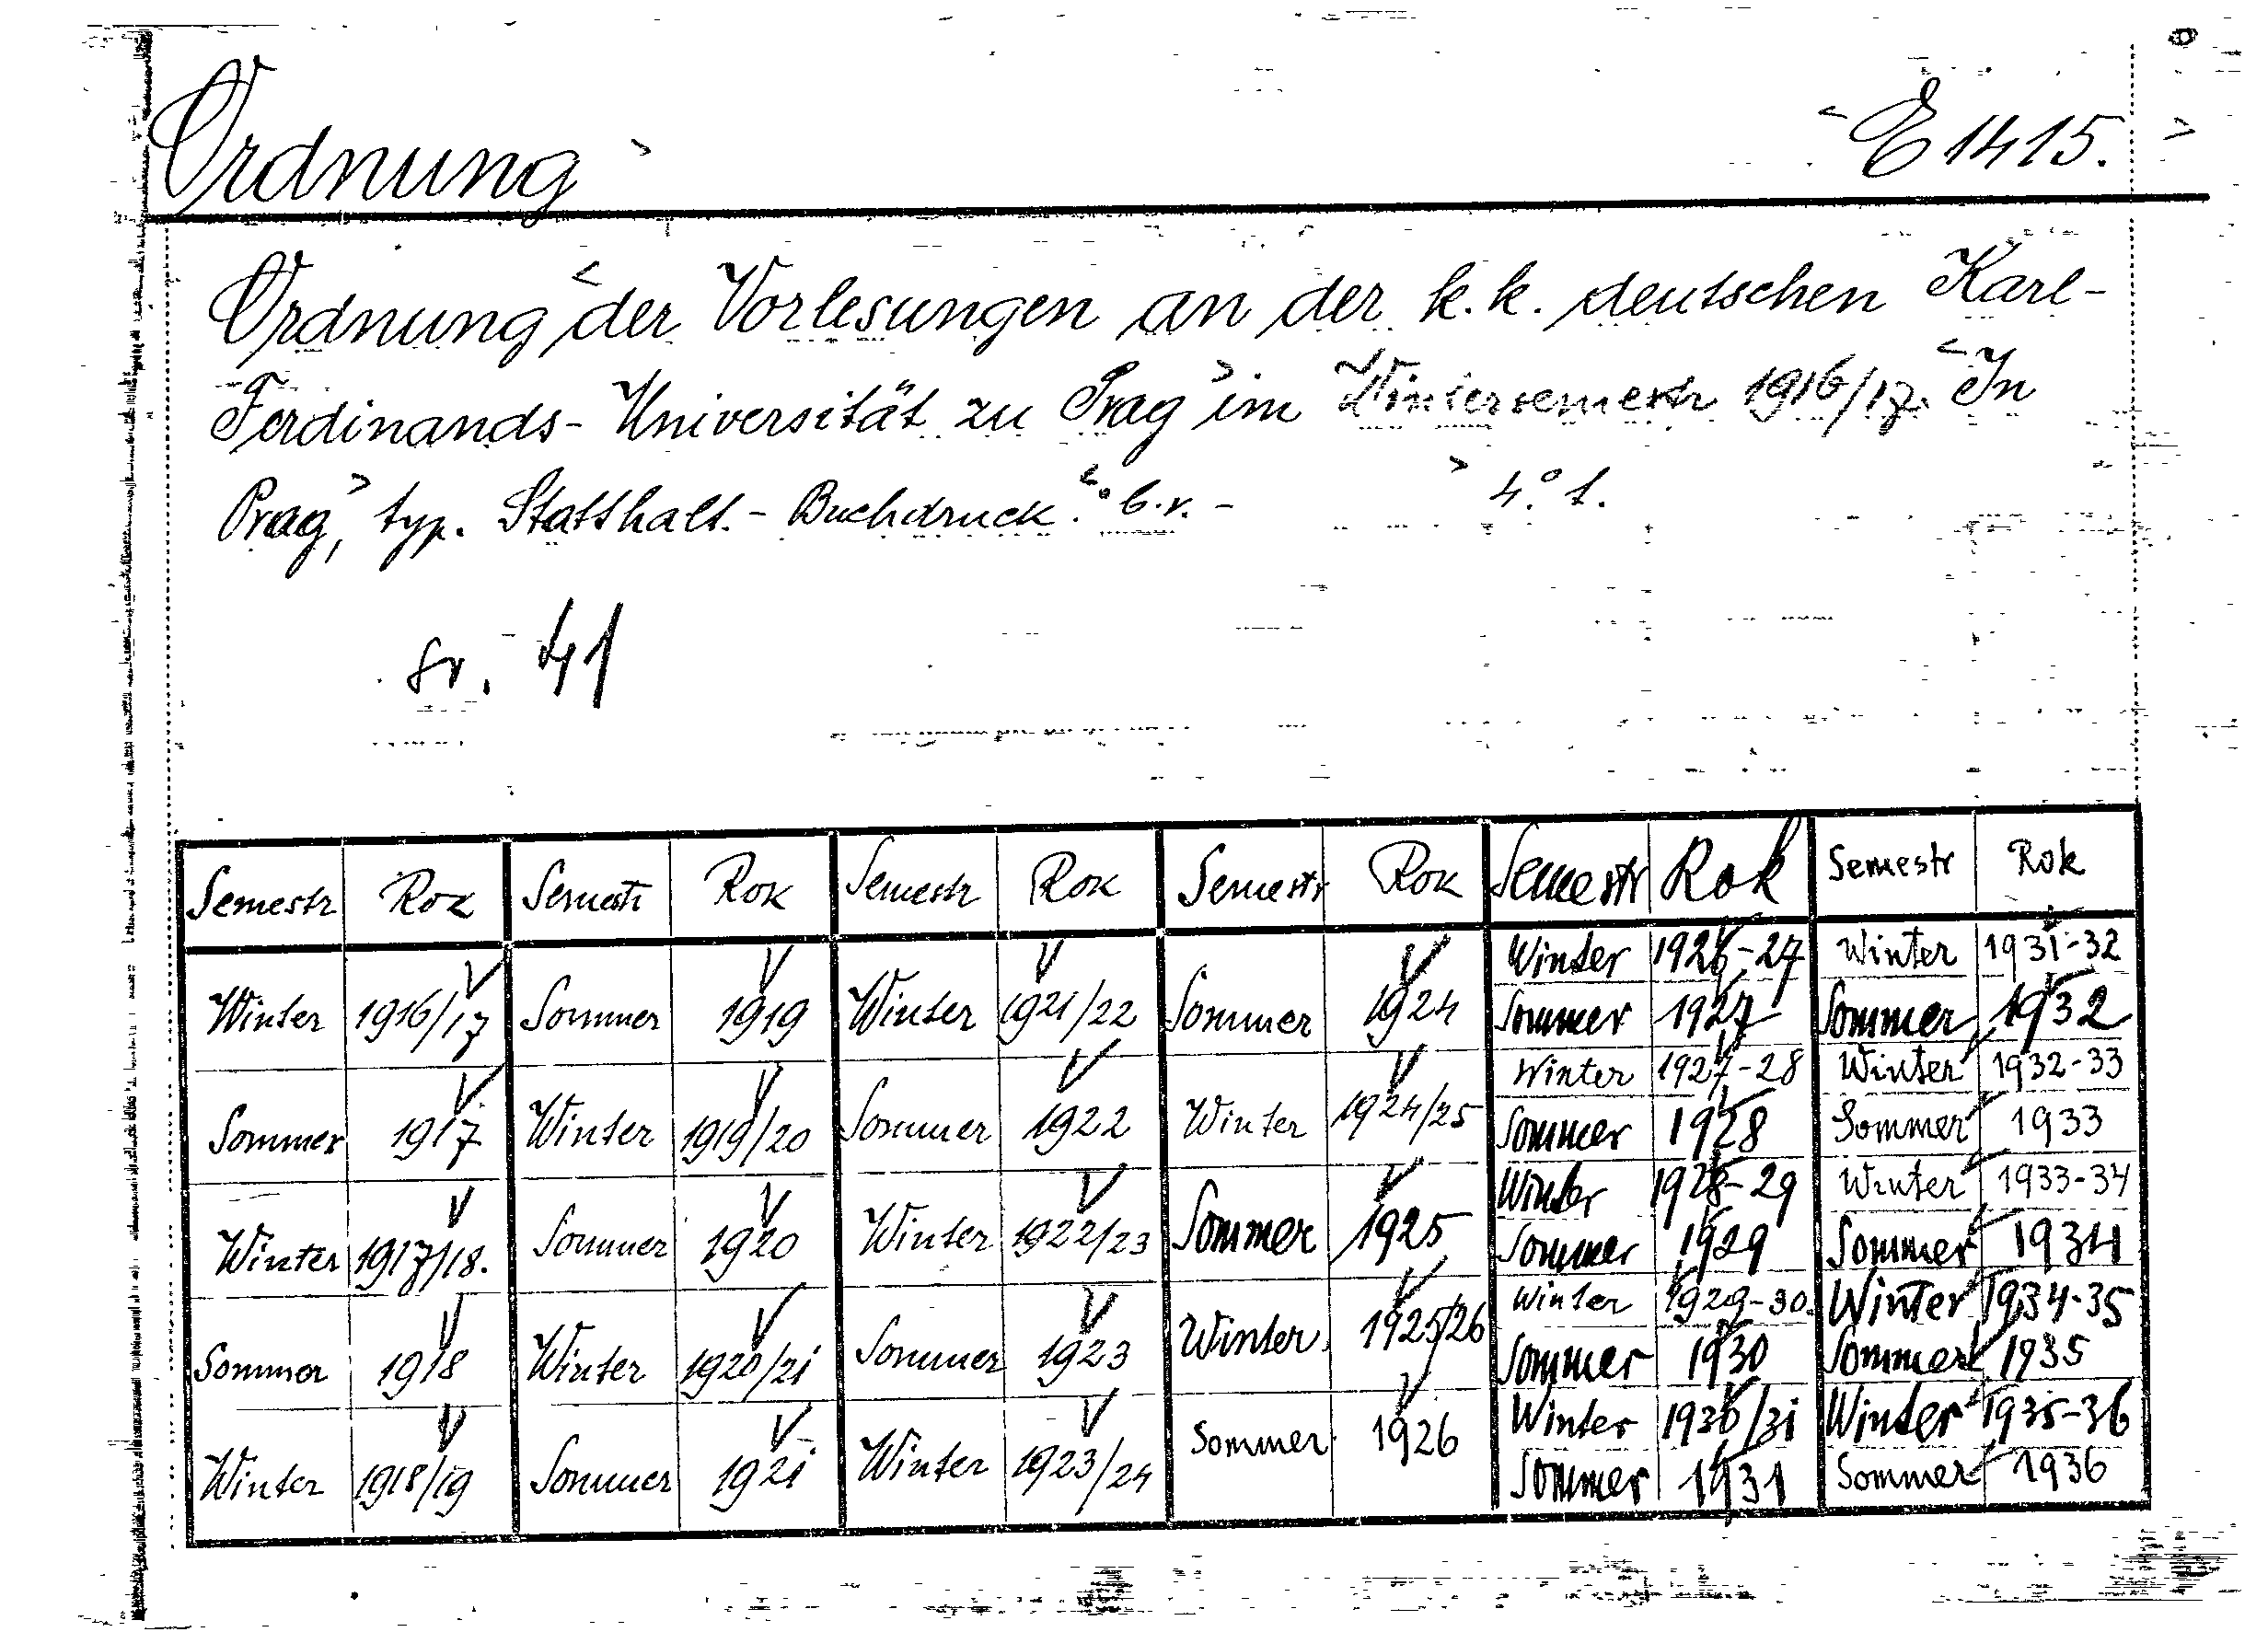 Ordnung E 1415.
Ordnung der Vorlesungen an der k. k. deutschen Karl-
Ferdinands-Universität zu Prag im Wintersemestr 1916/17. In
Prag, typ. Statthalt.-Buchdruck. b.r. - 4.° 1.
41
Semestr Rok Semestr Rok Semestr Rok Semestr Rok Semestr Rok Semestr Rok
Winter 1926-27 Winter 1931-32
Winter 1916/17 Sommer 1919 Winter 1921/22 Sommer 1924 Sommer 1927 Sommer 1932
Winter 1927-28 Winter 1932-33
Sommer 1917 Winter 1919/20 Sommer 1922 Winter 1924/25 Sommer 1928 Sommer 1933
Winter 1928-29 Winter 1933-34
Winter 1917/18. Sommer 1920 Winter 1922/23 Sommer 1925 Sommer 1929 Sommer 1934
Winter 1929-30. Winter 1934-35
Sommer 1918 Winter 1920/21 Sommer 1923 Winter 1925/26 Sommer 1930 Sommer 1935
Winter 1930/31 Winter 1935-36
Winter 1918/19 Sommer 1921 Winter 1923/24 Sommer 1926 Sommer 1931 Sommer 1936